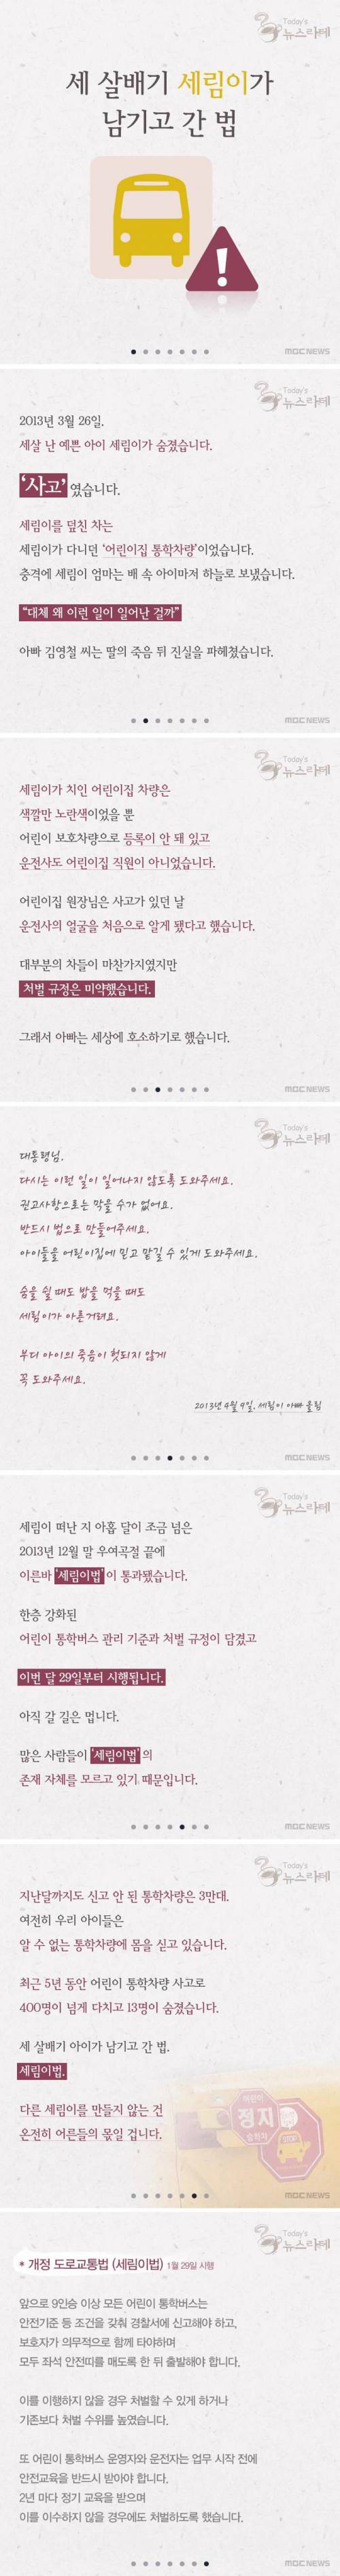 Today's
뉴스라떼
세 살배기 세림이가
남기고 간 법
MBC NEWS
Today's
뉴스라떼
2013년 3월 26일.
세살 난 예쁜 아이 세림이가 숨졌습니다.
'사고'였습니다.
세림이를 덮친 차는
세림이가 다니던 '어린이집 통학차량'이었습니다.
충격에 세림이 엄마는 배 속 아이마저 하늘로 보냈습니다.
"대체 왜 이런 일이 일어난 걸까"
아빠 김영철 씨는 딸의 죽음 뒤 진실을 파헤쳤습니다.
MBC NEWS
Today's
뉴스라떼
세림이가 치인 어린이집 차량은
색깔만 노란색이었을 뿐
어린이 보호차량으로 등록이 안 돼 있고
운전사도 어린이집 직원이 아니었습니다.
어린이집 원장님은 사고가 있던 날
운전사의 얼굴을 처음으로 알게 됐다고 했습니다.
대부분의 차들이 마찬가지였지만
처벌 규정은 미약했습니다.
그래서 아빠는 세상에 호소하기로 했습니다.
MBC NEWS
Today's
뉴스라떼
대통령님.
다시는 이런 일이 일어나지 않도록 도와주세요.
권고사항으로는 막을 수가 없어요.
반드시 법으로 만들어주세요.
아이들을 어린이집에 믿고 맡길 수 있게 도와주세요.
숨을 쉴 때도 밥을 먹을 때도
세림이가 아른거려요.
부디 아이의 죽음이 헛되지 않게
꼭 도와주세요.
2013년 4월 9일. 세림이 아빠 올림
MBC NEWS
Today's
뉴스라떼
세림이 떠난 지 아홉 달이 조금 넘은
2013년 12월 말 우여곡절 끝에
이른바 '세림이법'이 통과됐습니다.
한층 강화된
어린이 통학버스 관리 기준과 처벌 규정이 담겼고
이번 달 29일부터 시행됩니다.
아직 갈 길은 멉니다.
많은 사람들이 '세림이법'의
존재 자체를 모르고 있기 때문입니다.
MBC NEWS
Today's
뉴스라떼
지난달까지도 신고 안 된 통학차량은 3만대.
여전히 우리 아이들은
알 수 없는 통학차량에 몸을 싣고 있습니다.
최근 5년 동안 어린이 통학차량 사고로
400명이 넘게 다치고 13명이 숨졌습니다.
세 살배기 아이가 남기고 간 법.
세림이법.
다른 세림이를 만들지 않는 건
온전히 어른들의 몫일 겁니다.
어린이
정지
승하차
STOP
MBC NEWS
Today's
뉴스라떼
* 개정 도로교통법 (세림이법) 1월 29일 시행
앞으로 9인승 이상 모든 어린이 통학버스는
안전기준 등 조건을 갖춰 경찰서에 신고해야 하고,
보호자가 의무적으로 함께 타야하며
모두 좌석 안전띠를 매도록 한 뒤 출발해야 합니다.
이를 이행하지 않을 경우 처벌할 수 있게 하거나
기존보다 처벌 수위를 높였습니다.
또 어린이 통학버스 운영자와 운전자는 업무 시작 전에
안전교육을 반드시 받아야 합니다.
2년 마다 정기 교육을 받으며
이를 이수하지 않을 경우에도 처벌하도록 했습니다.
MBC NEWS